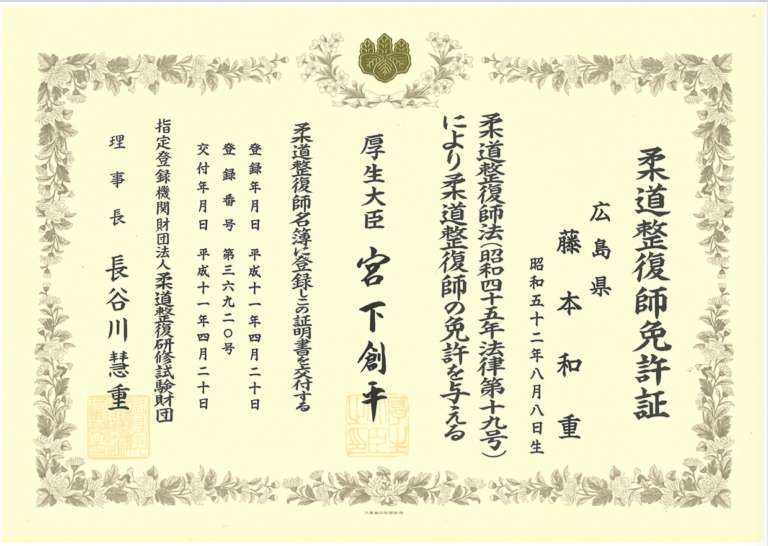 柔道整復師免許証
広島県
藤本和重
昭和五十二年八月八日生
柔道整復師法(昭和四十五年法律第十九号)
により柔道整復師の免許を与える
厚生大臣 宮下創平
柔道整復師名簿に登録しこの証明書を交付する
登録年月日 平成十一年四月二十日
登録番号 第三六九二〇号
交付年月日 平成十一年四月二十日
指定登録機関財団法人柔道整復研修試験財団
理事長 長谷川慧重